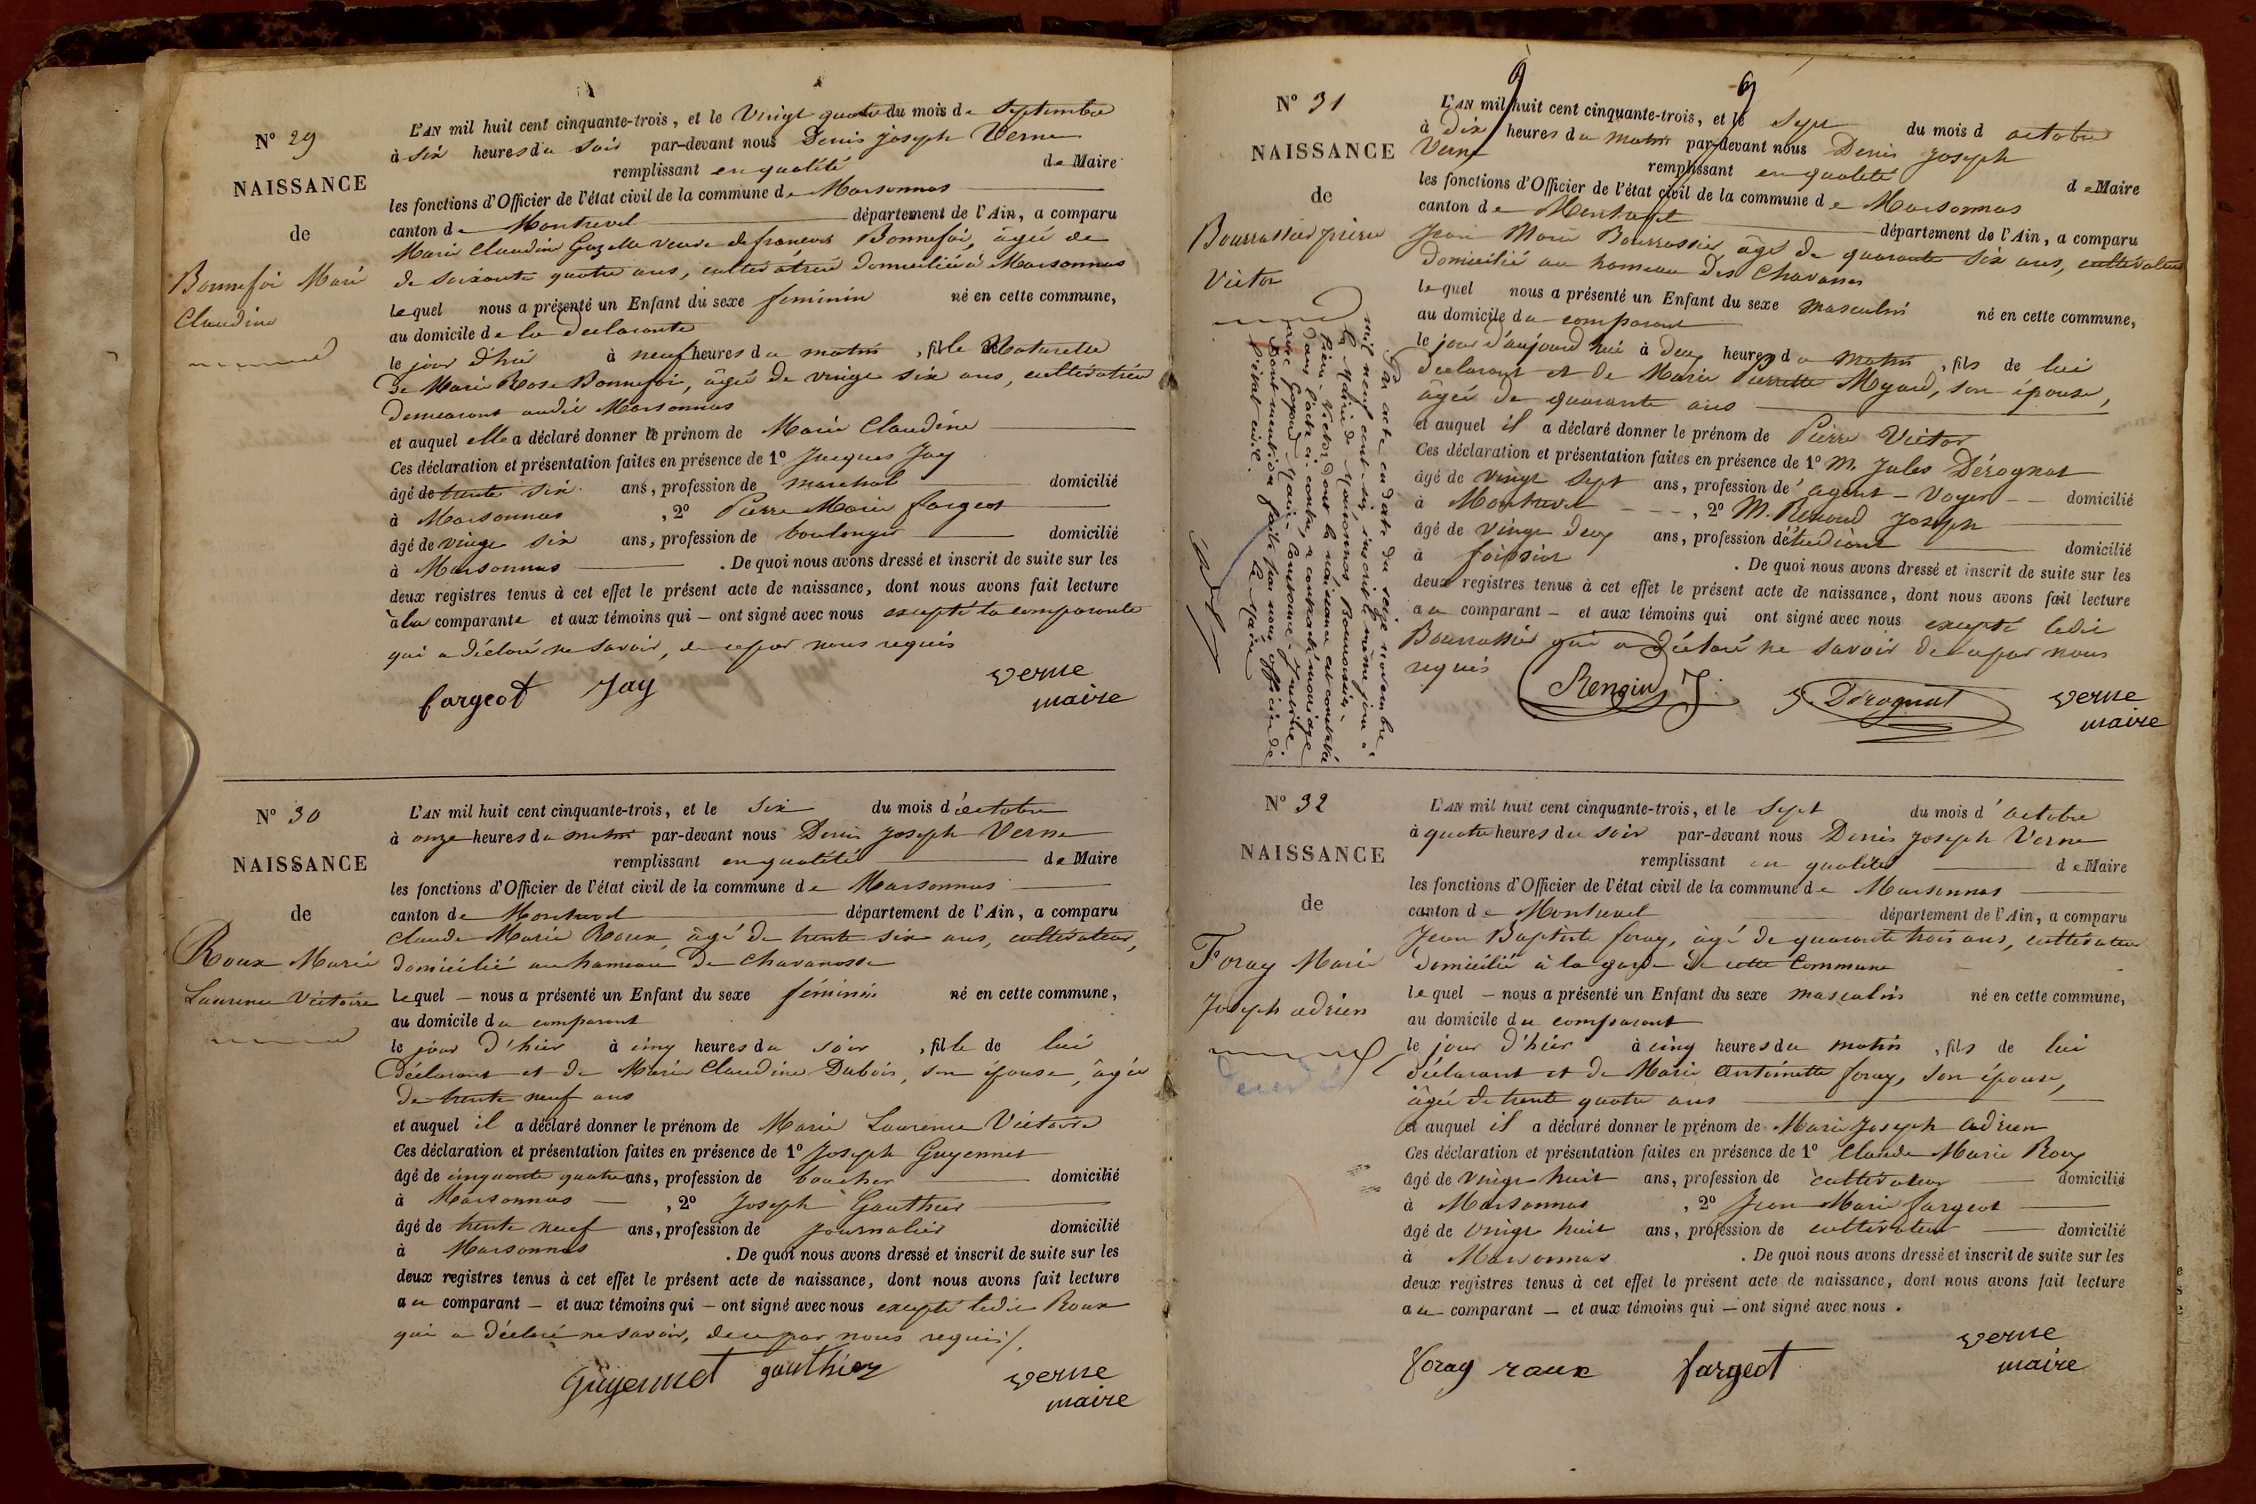 N° 29
NAISSANCE
de
Bonnefoi Marie
Claudine
L'AN mil huit cent cinquante-trois, et le Vingt quatre du mois de Septembre
à six heures du soir par-devant nous Denis Joseph Verne
remplissant en qualité de Maire
les fonctions d'Officier de l'état civil de la commune de Marsonnas
canton de Montrevel département de l'Ain, a comparu
Marie Claudine Gazelle veuve de françois Bonnefoi, âgée de
de soixante quatre ans, cultivatrice domiciliée à Marsonnas
lequel nous a présenté un Enfant du sexe féminin né en cette commune,
au domicile de la déclarante
le jour d'hier à neuf heures du matin, fille Naturelle
de Marie Rose Bonnefoi, âgée de vingt six ans, cultivatrice
demeurant audit Marsonnas
et auquel elle a déclaré donner le prénom de Marie Claudine
Ces déclaration et présentation faites en présence de 1° Jacques Jay
âgé de trente six ans, profession de marechal domicilié
à Marsonnas, 2° Pierre Marie fargeot
âgé de vingt six ans, profession de boulanger domicilié
à Marsonnas. De quoi nous avons dressé et inscrit de suite sur les
deux registres tenus à cet effet le présent acte de naissance, dont nous avons fait lecture
à la comparante et aux témoins qui – ont signé avec nous excepté la comparante
qui a déclaré ne savoir, de ce par nous requis
fargeot Jay verne
maire
N° 30
NAISSANCE
de
Roux Marie
Laurence Victoire
L'AN mil huit cent cinquante-trois, et le six du mois d'octobre
à onze heures du matin par-devant nous Denis Joseph Verne
remplissant en qualité de Maire
les fonctions d'Officier de l'état civil de la commune de Marsonnas
canton de Montrevel département de l'Ain, a comparu
Claude Marie Roux, âgé de trente six ans, cultivateur,
domicilié au hameau de Chavanosse
lequel – nous a présenté un Enfant du sexe féminin né en cette commune,
au domicile du comparant
le jour d'hier à cinq heures du soir, fille de lui
déclarant et de Marie Claudine Dubois, son épouse, âgée
de trente neuf ans
et auquel il a déclaré donner le prénom de Marie Laurence Victoire
Ces déclaration et présentation faites en présence de 1° Joseph Guyennet
âgé de cinquante quatre ans, profession de boucher domicilié
à Marsonnas –, 2° Joseph Gauthier
âgé de trente neuf ans, profession de journalier domicilié
à Marsonnas. De quoi nous avons dressé et inscrit de suite sur les
deux registres tenus à cet effet le présent acte de naissance, dont nous avons fait lecture
au comparant – et aux témoins qui – ont signé avec nous excepté ledit Roux
qui a déclaré ne savoir, de ce par nous requis.
Guyennet gauthier verne
maire
N° 31
NAISSANCE
de
Bourrassier pierre
Victor
Par acte en date du seize novembre
mil neuf cent six inscrit le même jour à
la Mairie de Marsonnas, Bourrassier
Pierre-Victor dont la naissance est constatée
dans l'acte ci-contre, a contracté mariage
avec
Dont mention faite par nous officier de
l'état civil. Le Maire
L'AN mil huit cent cinquante-trois, et le sept du mois d octobre
à dix heures du matin par-devant nous Denis Joseph
Verne remplissant en qualité de Maire
les fonctions d'Officier de l'état civil de la commune de Marsonnas
canton de Montrevel département de l'Ain, a comparu
Jean Marie Bourrassier, âgé de quarante six ans, cultivateur
domicilié au hameau des Chavannes
lequel nous a présenté un Enfant du sexe masculin né en cette commune,
au domicile du comparant
le jour d'aujourd'hui à deux heures du matin, fils de lui
déclarant et de Marie Pierrette Myard, son épouse,
âgée de quarante ans
et auquel il a déclaré donner le prénom de Pierre Victor
Ces déclaration et présentation faites en présence de 1° M. Jules Dérognat
âgé de vingt sept ans, profession de agent-Voyer domicilié
à Montrevel, 2° M. Joseph
âgé de vingt deux ans, profession d'étudiant domicilié
à foissiat. De quoi nous avons dressé et inscrit de suite sur les
deux registres tenus à cet effet le présent acte de naissance, dont nous avons fait lecture
au comparant – et aux témoins qui ont signé avec nous excepté ledit
Bourrassier qui a déclaré ne savoir de ce par nous
requis
J. Dérognat verne
maire
N° 32
NAISSANCE
de
Foray Marie
Joseph adrien
L'AN mil huit cent cinquante-trois, et le sept du mois d'octobre
à quatre heures du soir par-devant nous Denis Joseph Verne
remplissant en qualité de Maire
les fonctions d'Officier de l'état civil de la commune de Marsonnas
canton de Montrevel département de l'Ain, a comparu
Jean Baptiste foray, âgé de quarante trois ans, cultivateur
domicilié à la garde de cette Commune
lequel – nous a présenté un Enfant du sexe masculin né en cette commune,
au domicile du comparant
le jour d'hier à cinq heures du matin, fils de lui
déclarant et de Marie Antoinette foray, son épouse,
âgée de trente quatre ans
et auquel il a déclaré donner le prénom de Marie Joseph Adrien
Ces déclaration et présentation faites en présence de 1° Claude Marie Roux
âgé de vingt huit ans, profession de cultivateur domicilié
à Marsonnas, 2° Jean Marie fargeot
âgé de vingt huit ans, profession de cultivateur domicilié
à Marsonnas. De quoi nous avons dressé et inscrit de suite sur les
deux registres tenus à cet effet le présent acte de naissance, dont nous avons fait lecture
au comparant – et aux témoins qui – ont signé avec nous.
foray roux fargeot verne
maire